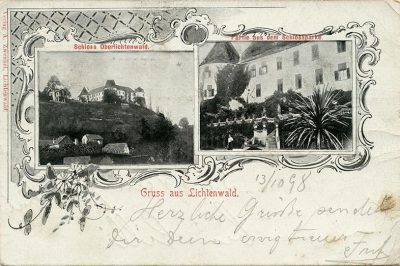 Verlag A. Zweiner, Lichtenwald.
Schloss Oberlichtenwald.
Partie aus dem Schlossparke
Gruss aus Lichtenwald.
13/10 98
Herzliche Grüße sendet
Dir Dein ewig treuer